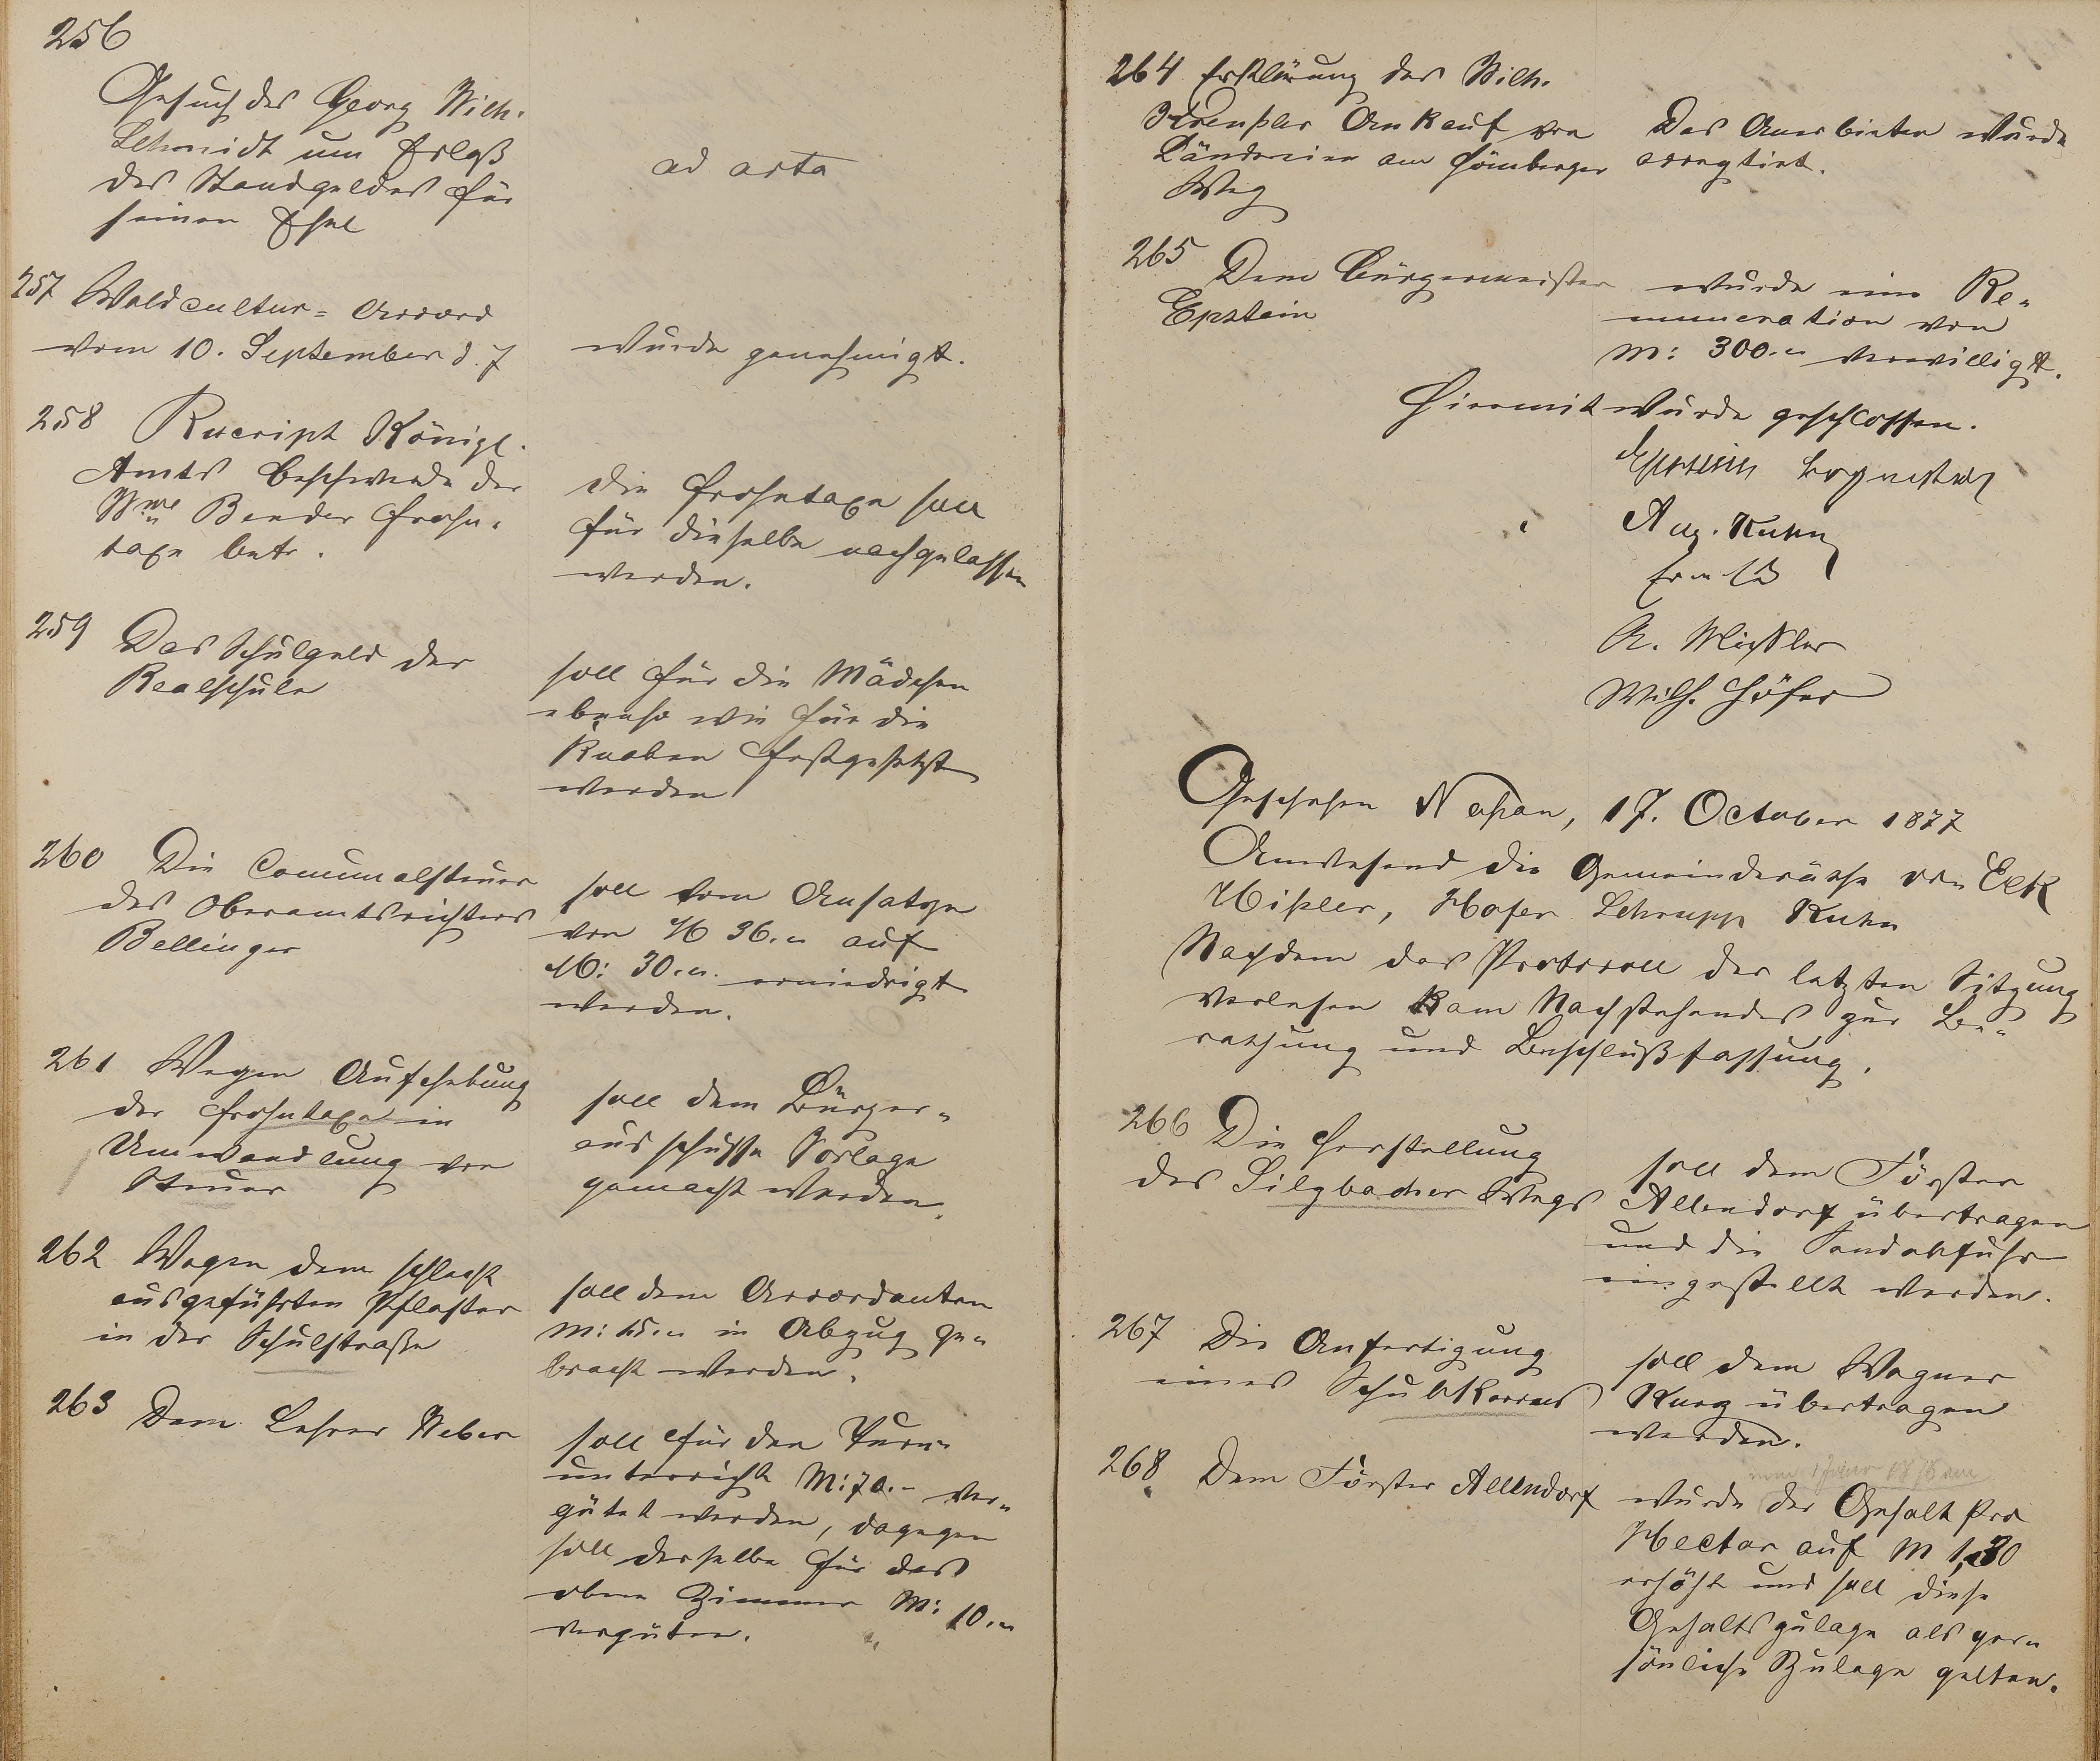 256
Gesuch des Georg Wilh.
Schmidt um Erlaß
des Standgeldes für
seinen Esel
ad acta
257 Waldcultur=Accord
vom 10. September d. J
wurde genehmigt.
258 Rescript Königl.
Amts Beschwerde der
Wwe Bender Frohn-
taxe betr.
die Frohntaxe soll
für dieselbe nachgelassen
werden.
259 Das Schulgeld der
Realschule
soll für die Mädchen
ebenso wie für die
Knaben festgesetzt
werden
260 Die Communalsteuer
des Oberamtsrichters
Bellinger
soll vom Ansatze
von M 36.„ auf
M: 30.„ erniedrigt
werden.
261 Wegen Aufhebung
der Frohntaxe in
Umwandlung von
Steuer
soll dem Bürger„
ausschusse Vorlage
gemacht werden.
262 Wegen dem schlecht
ausgeführten Pflaster
in der Schulstraße
soll dem Accordanten
M: 15.„ in Abzug ge„
bracht werden.
263 Dem Lehrer Weber
soll für den Turn„
unterricht M: 70.– ver„
gütet werden, dagegen
soll derselbe für das
obere Zimmer M: 10.„
vergüten.
264 Erklärung des Wilh.
Ankauf von
Ländereien am Hömberger
Weg
Das Anerbieten wurde
acceptirt.
265 Dem Bürgermeister
Epstein
wurde eine Re„
muneration von
M: 300.„ verwilligt.
Hiermit wurde geschlossen.
Epstein Bürgermstr
Aug. Kuhn
A. Mißler
Wilh. Höfer
Geschehen Nassau, 17. October 1877
Anwesend die Gemeinderäthe von Eck
Mißler, Höfer Schrupp Kuhn
Nachdem das Protocoll der letzten Sitzung
verlesen kam Nachstehendes zur Be„
rathung und Beschlußfassung.
266 Die Herstellung
des Silzbacher Wegs
soll dem Förster
Allendorf übertragen
und die Sandabfuhr
eingestellt werden.
267 Die Anfertigung
eines Schubkarrens
soll dem Wagner
Kurz übertragen
werden.
268 Dem Förster Allendorf
wurde der Gehalt pro
Hectar auf M 1,30
erhöht und soll diese
Gehaltszulage als per„
sönliche Zulage gelten.